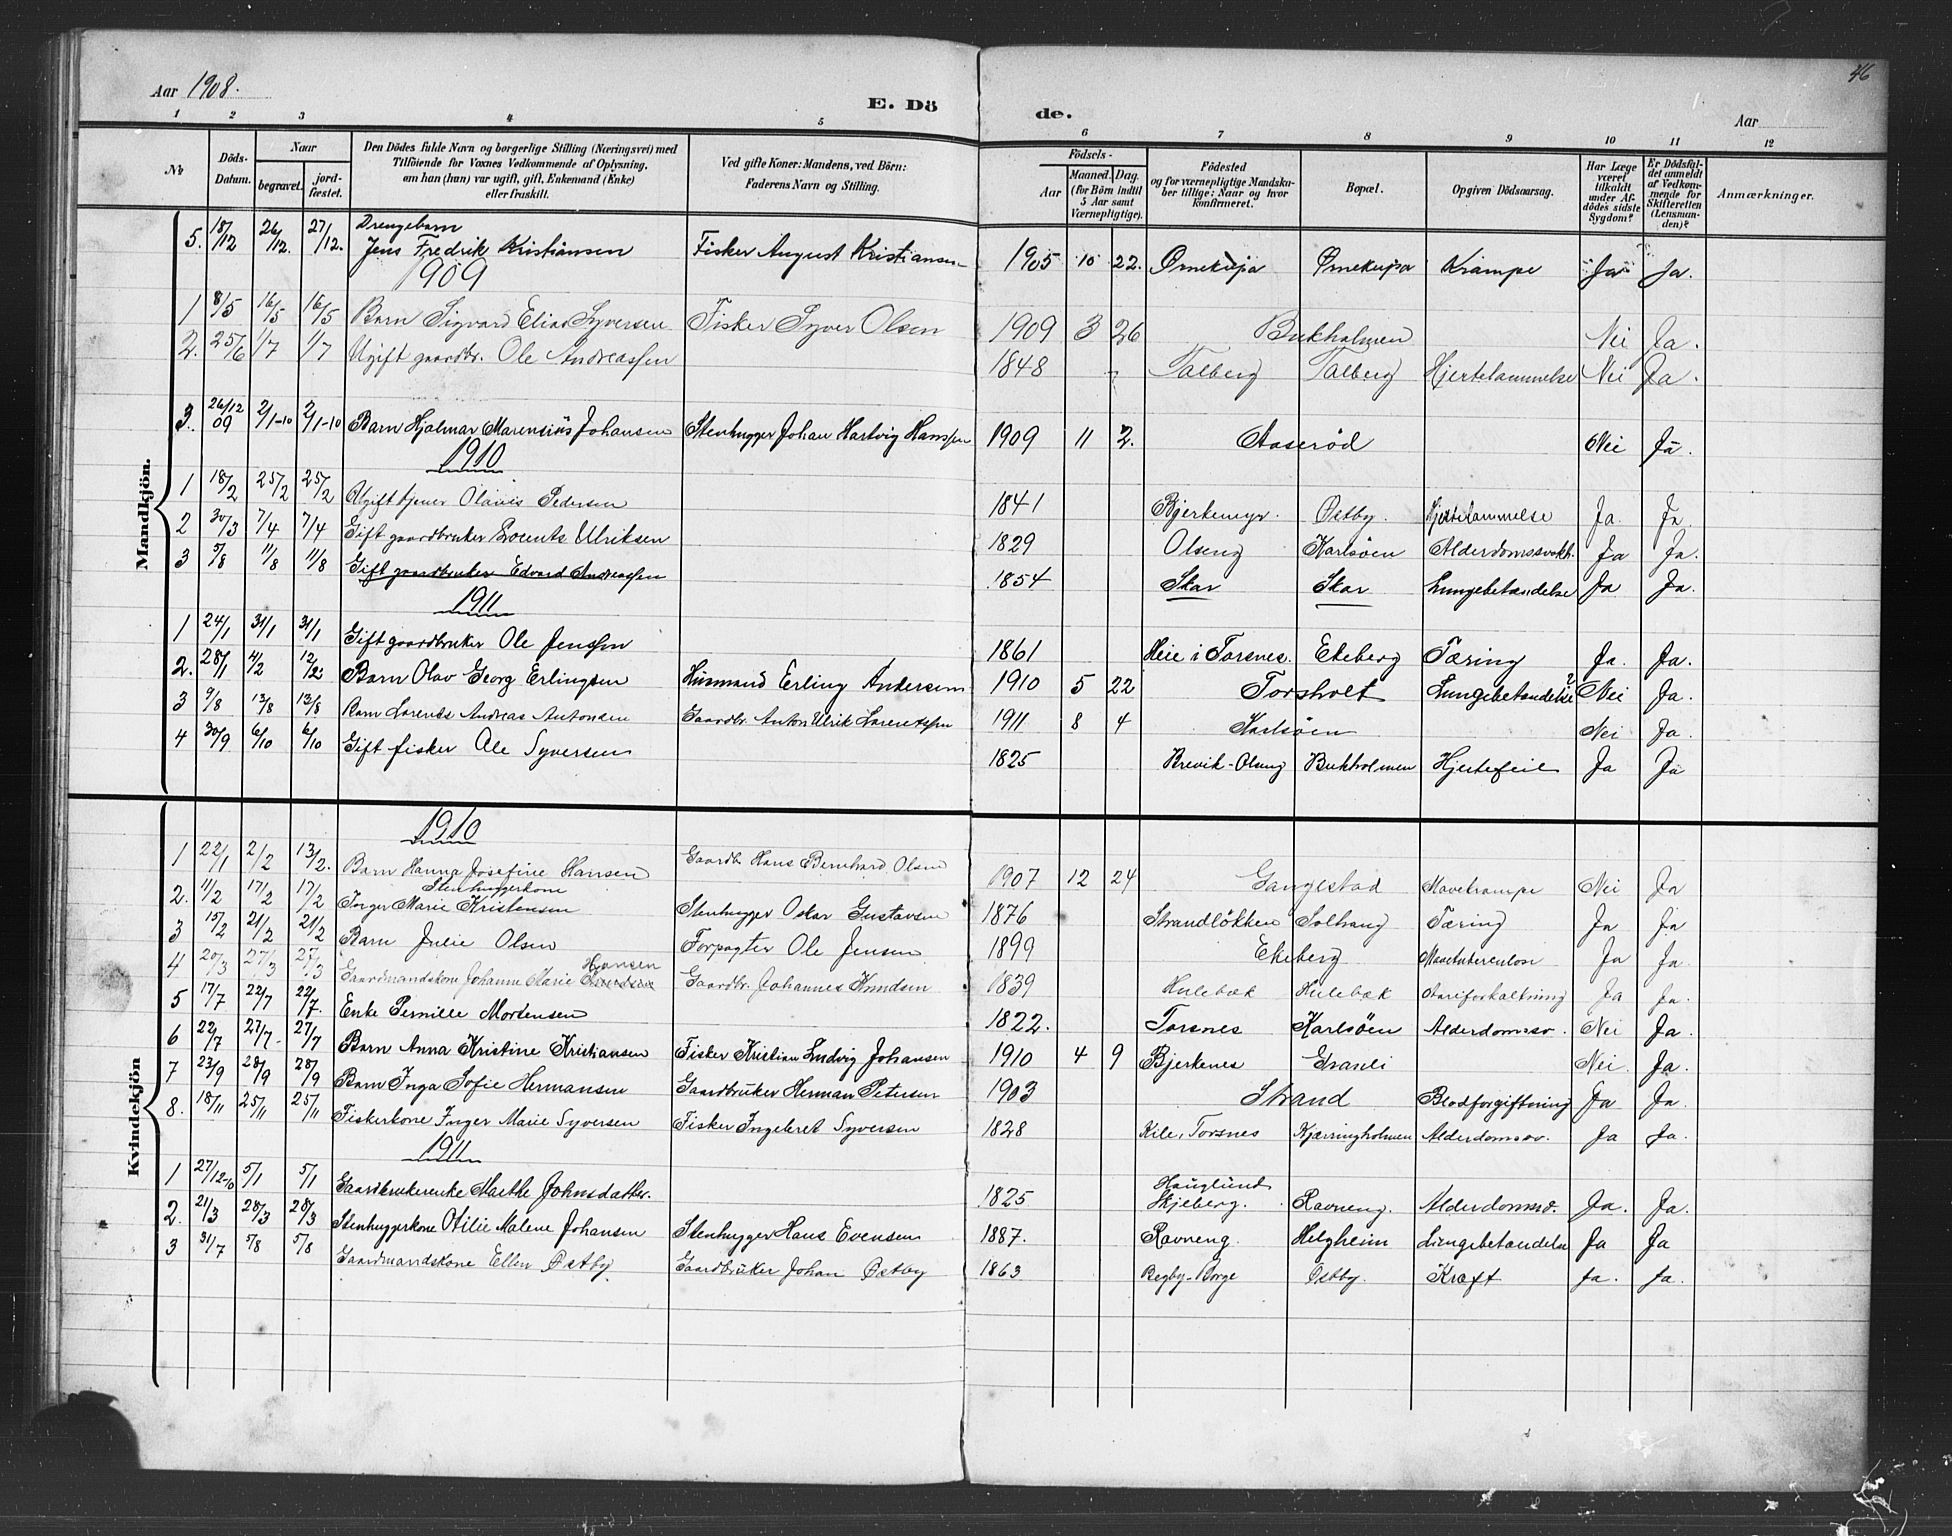 46
Aar 1908.
E. Dö de.
Aar
1 2 3 4 5 6 7 8 9 10 11 12
No
Döds-Datum.
Naar
begravet. jord-fæstet.
Den Dödes fulde Navn og borgerlige Stilling (Næringsvei) med
Tilföiende for Voxnes Vedkommende af Oplysning,
om han (hun) var ugift, gift, Enkemand (Enke)
eller fraskilt.
Ved gifte Koner: Mandens, ved Börn:
Faderens Navn og Stilling.
Födsels-
Aar
Maaned. Dag.
(for Börn indtil 5 Aar samt Værnepligtige).
Födested
og for værnepligtige Mandska-
ber tillige: Naar og hvor
konfirmeret.
Bopæl.
Opgiven Dödsaarsag.
Har Læge været tilkaldt under Afdödes sidste Sygdom?
Er Dödsfaldet anmeldt af Vedkommende for Skifteretten (Lensmanden)?
Anmærkninger.
Mandkjön.
Drengebarn
5. 18/12 26/12. 27/12. Jens Fredrik Kristiansen Fisker August Kristiansen 1905 10 22. Ørnekupa Ørnekupa Krampe Ja Ja.
1909
1 8/5 16/5 16/5 Barn Sigvard Elias Syversen Fisker Syver Olsen 1909 3 26 Bukholmen Nei Ja.
2. 25/6 1/7 1/7 Ugift gaardbr. Ole Andreassen 1848 Talberg Talberg Hjertelammelse Nei Ja.
3. 26/12 09 2/1-10 2/1-10 Barn Hjalmar Marensius Johansen Stenhugger Johan Hartvig Hanssen 1909 11 2. Aaserød Nei Ja.
1910
1 18/2 25/2 25/2 Ugift tjener Olavis Pedersen 1841 Bjerkemyr. Østby. Hjertelammelse Ja. Ja.
2 30/3 7/4 7/4 Gift gaardbruker Ulriksen 1829 Olseng Karlsøen Alderdomssvakh. Ja Ja.
3 5/8 11/8 11/8 Gift gaardbruker Edvard Andreassen 1854 Skar Skar Lungebetændelse Ja Ja.
1911
1 24/1 31/1 31/1 Gift gaardbruker Ole Jenssen 1861 Heie i Torsnes. Ekeberg Tæring Ja. Ja.
2. 28/1 4/2 12/2 Barn Olav Georg Erlingsen Husmand Erling Andersen 1910 5 22 Torsholt Lungebetændelse? Nei Ja.
3 9/8 13/8 13/8 Barn Lorents Andreas Antonsen Gaardbr. Anton Ulrik Lorentssen 1911 8 4 Karlsøen Nei Ja.
4 30/9 6/10 6/10 Gift fisker Ole Syversen 1825 Brevik-Olseng Bukholmen Hjertefeil Ja Ja
Kvindekjön
1910
1 22/1 2/2 13/2. Barn Hanna Josefine Hansen Gaardb. Hans Bernhard Olsen 1907 12 24 Gangestad Mavekrampe Nei Ja
Stenhuggerkone
2. 11/2 17/2 17/2 Inger Marie Kristensen Stenhugger Oskar Gustavsen 1876 Strandløkken Solhaug Tæring Ja Ja
3 15/2 21/2 21/2 Barn Julie Olsen Forpagter Ole Jensen 1899 Ekeberg Mavetuberculose Ja Ja.
Hansen
4 20/3 27/3 27/3 Gaardmandskone Johanne Marie Gaardbr. Johannes Knudsen 1839 Hulebæk Hulebæk Aareforkalkning Ja Ja.
5 17/7 22/7 22/7. Enke Pernille Mortensen 1822. Torsnes Karlsøen Alderdomssv. Nei Ja.
6 22/7 27/7. 27/7 Barn Anna Kristine Kristiansen Fisker Kristian Ludvig Johansen 1910 4 9 Bjerkenes Granli Nei. Ja.
7 23/9 28/9 28/9 Barn Inga Sofie Hermansen Gaardbruker Herman Petersen 1903 Strand Blodforgiftning Ja Ja.
8. 18/11 25/11 25/11 Fiskerkone Inger Marie Syversen Fisker Ingebret Syversen 1828 Kile, Torsnes Kjærringholmen Alderdomssv. Ja Ja.
1911
1 27/12-10 5/1 5/1 Gaardbrukerenke Marthe Johnsdatter. 1825 Hauglund Skjeberg. Ravneng. Alderdomssv. Ja. Ja.
2. 21/3 28/3 28/3 Stenhuggerkone Otilie Malene Johansen Stenhugger Hans Evensen 1887. Ravneng. Helgheim Lungebetændelse Ja Ja
3 31/7 5/8 5/8 Gaardmandskone Ellen Østby. Gaardbruker Johan Østby 1863 Begby-Borge Østby. Kræft Ja. Ja.